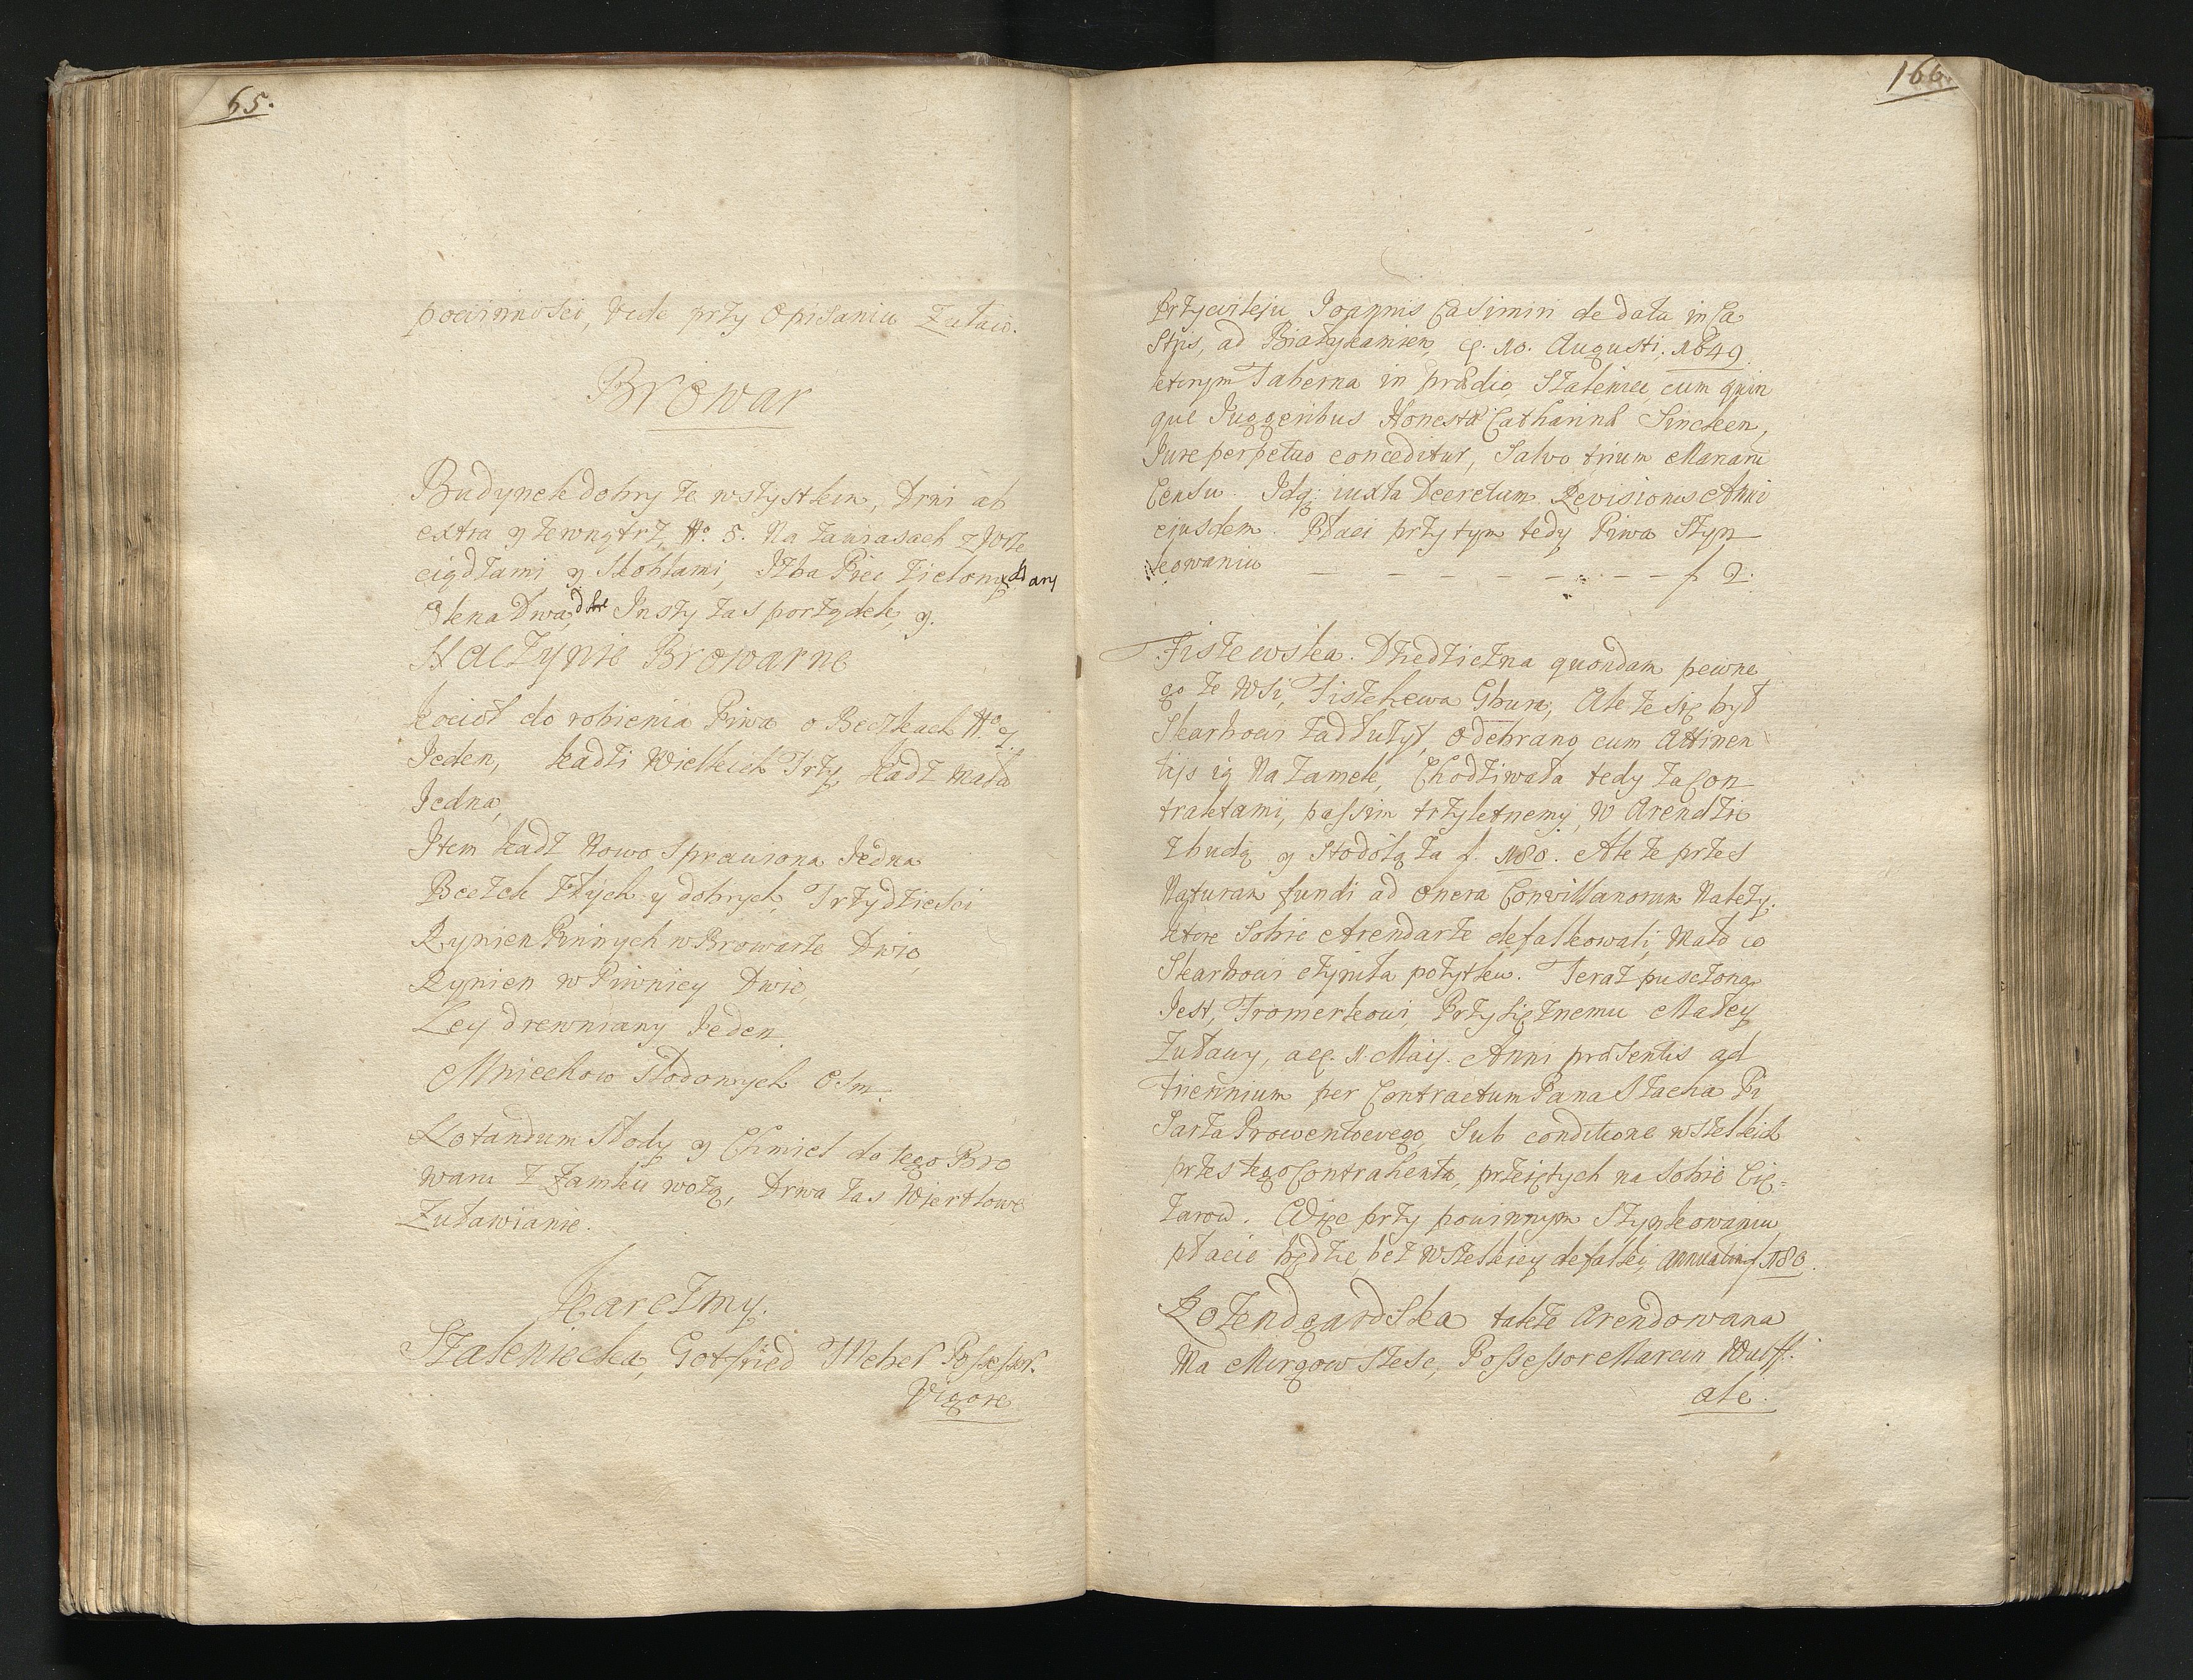 65.
powinności, vide przy Opisaniu Żuław.
Browar
Budynek dobry ze wszystkim, Drzwi ab
extra y zewnątrz No. 5. Na zawiasach z Wrze
ciądzami y Skoblami, Izba Piec Zielony Stary
Okna Dwa, dobre Inszy zas porządek, y.
Naczynie Browarne
Kocioł do robienia Piwa o Beczkach No
Jeden, Kadzi Wielkich Trzy, Kadz mała
Jedna,
Item Kadz Nowo Sprawiona Jedna
Beczek złych y dobrych Trzydzieści
Rynien Piwnych w Browarze Dwie,
Rynien w Piwnicy Dwie,
Ley drewniany Jeden.
Miechow Słodowych Osm.
Notandum Słody y Chmiel do tego Bro
waru z Zamku wożą, Drwa zas Wierdłowe
Żuławianie.
Karczmy.
Staleniecka, Gotfried Webel Possessor.
Vigore
166.
Przywileju Joannis Casimiri de data in Ca
stris, ad Białykamien, d. 10. Augusti. 1649.
ktorym Taberna in prædio Staleniec cum quin
que Iuggeribus Honestæ Catharinæ Sincken,
Jure perpetuo conceditur, Salvo trium Marcaru
Censu. Idq; iuxta Decretum Revisionis Anni
eiusdem. Płaci przy tym tedy Piwa Szyn
kowaniu — — — — — — — f 2.
Fiszewska. Dziedziczna quondam pewne
go ze Wsi, Fiszekewa Gbura, Ale ze się był
Skarbowi zadłużył, odebrano, cum Attinen
tijs ią Na Zamek, Chodziwała tedy za Con
traktami, passim trzyletnemi, w Arendzie
z budą y Stodołą za f. 180. Ale ze przes
Naturam fundi ad onera Convillanorum Należy.
ktore Sobie Arendarze defalkowali, Mało co
Skarbowi czyniła pożytku. Teraz pusczona
Jest, Fromerkowi, Przysiężnemu Małey
Żuławy, a d. 1. Maij. Anni præsentis ad
triennium per Contractum Pana Stacha Pi
sarza Prowentowego, Sub conditione wszelkich
przes tego Contrahenta, przeiętych na Sobie Cię=
żarow. Więc przy powinnym Szynkowaniu
płacić będzie bez wszelkiey defalki, annuatim f 180.
Rozendgardska także Arendowana
Ma Morgow Szesc, Possessor Marcin Wulff.
ale